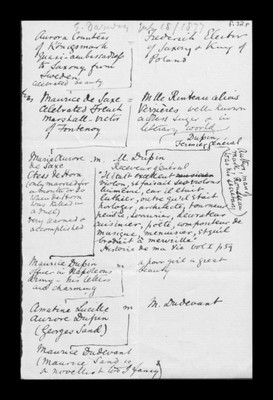 July 18/1877
Aurora Countess of Königsmark
Quasi-ambassadress to Saxony from Sweden
celebrated beauty
Frederick Elector of Saxony & King of Poland
Maurice de Saxe
Celebrated French Marshall - victor of Fontenoy
Mlle Rinteau alias Verrières well known actress singer in literary world
Dupin, Fermier General
Marie Aurore de Saxe
Ctess de Horn
(only married for a month to de Horn
who was killed in a duel)
very learned & accomplished
m. M. Dupin
Receiver general
"Il était musicien
violon, et faisait ses violons
lui-même, car il était
luthier, outre qu'il était
horloger, architecte, tourneur,
peintre, serrurier, décorateur
cuisinier, poète, compositeur de
musique, menuisier, et qu'il
brodait à merveille"
Histoire de ma Vie vol 2 p 59
Maurice Dupin
officer in Napoleon's
army - his letters
are charming
a poor girl a great
beauty
Amantine Lucille
Aurore Dupin
(Georges Sand)
m. M. Dudevant
Maurice Dudevant
(Maurice Sand is
a novellist too